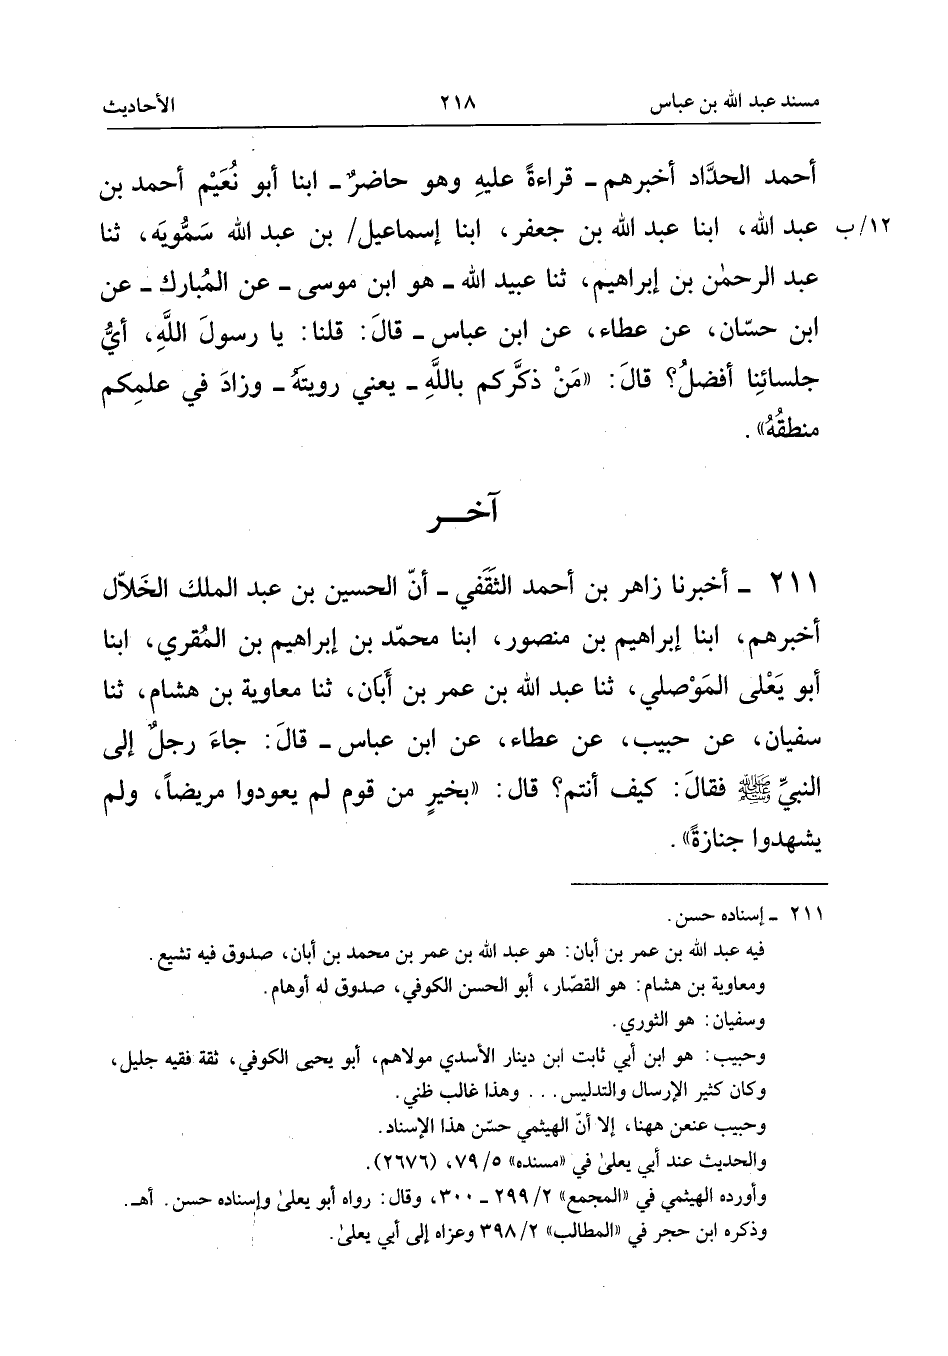 مسند عبد الله بن عباس ٢١٨ الأحاديث
أحمد الحدَّاد أخبرهم ـ قراءةً عليهِ وهو حاضرٌ ـ ابنا أبو نُعَيْم أحمد بن
١٢/ب عبد الله، ابنا عبد الله بن جعفر، ابنا إسماعيل/ بن عبد الله سَمُّويَه، ثنا
عبد الرحمٰن بن إبراهيم، ثنا عبيد الله ـ هو ابن موسى ـ عن المُبارك ـ عن
ابن حسّان، عن عطاء، عن ابن عباس ـ قالَ: قلنا: يا رسولَ اللَّهِ، أيُّ
جلسائِنا أفضلُ؟ قالَ: «مَنْ ذكَّركم باللَّهِ ـ يعني رويتهُ ـ وزادَ في علمِكم
منطقُهُ».
آخـــر
٢١١ ـ أخبرنا زاهر بن أحمد الثقَفي ـ أنّ الحسين بن عبد الملك الخَلاّل
أخبرهم، ابنا إبراهيم بن منصور، ابنا محمّد بن إبراهيم بن المُقري، ابنا
أبو يَعْلى المَوْصلي، ثنا عبد الله بن عمر بن أَبَان، ثنا معاوية بن هشام، ثنا
سفيان، عن حبيب، عن عطاء، عن ابن عباس ـ قالَ: جاءَ رجلٌ إلى
النبيِّ ﷺ فقالَ: كيف أنتم؟ قال: «بخيرٍ من قوم لم يعودوا مريضاً، ولم
يشهدوا جنازةً».
٢١١ ـ إسناده حسن.
فيه عبد الله بن عمر بن أبان: هو عبد الله بن عمر بن محمد بن أبان، صدوق فيه تشيع.
ومعاوية بن هشام: هو القصّار، أبو الحسن الكوفي، صدوق له أوهام.
وسفيان: هو الثوري.
وحبيب: هو ابن أبي ثابت ابن دينار الأسدي مولاهم، أبو يحيى الكوفي، ثقة فقيه جليل،
وكان كثير الإرسال والتدليس... وهذا غالب ظني.
وحبيب عنعن ههنا، إلا أنّ الهيثمي حسّن هذا الإسناد.
والحديث عند أبي يعلىٰ في «مسنده» ٧٩/٥، (٢٦٧٦).
وأورده الهيثمي في «المجمع» ٢٩٩/٢ ـ ٣٠٠، وقال: رواه أبو يعلىٰ وإسناده حسن. أهـ.
وذكره ابن حجر في «المطالب» ٣٩٨/٢ وعزاه إلى أبي يعلىٰ.